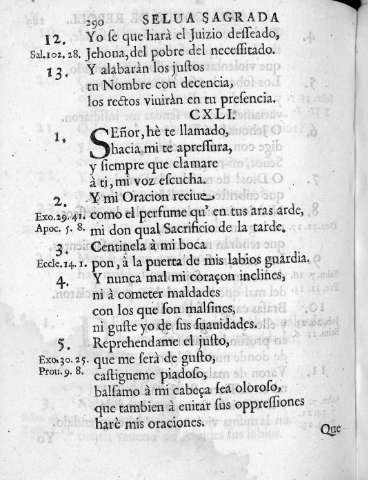 290 SELUA SAGRADA
12. Yo se que harà el Juizio deſſeado,
Sal.102.28. Jehoua, del pobre del neceſſitado.
13. Y alabaràn los juſtos
tu Nombre con decencia,
los rectos viuiràn en tu preſencia.
CXLI.
1. SEñor, hè te llamado,
hacia mi te apreſſura,
y ſiempre que clamare
à ti, mi voz eſcucha.
2. Y mi Oracion reciue
Exo.29.41. como el perfume qu' en tus aras arde,
Apoc. 5. 8. mi don qual Sacrificio de la tarde.
3. Centinela à mi boca
Eccle.14.1. pon, à la puerta de mis labios guàrdia.
4. Y nunca mal mi coraçon inclines,
ni à cometer maldades
con los que ſon malſines,
ni guſte yo de ſus ſuauidades.
5. Reprehendame el juſto,
Exo.30.25. que me ſerà de guſto,
Prou.9.8. caſtigueme piadoſo,
balſamo à mi cabeça ſea oloroſo,
que tambien à euitar ſus oppreſſiones
harè mis oraciones.
Que